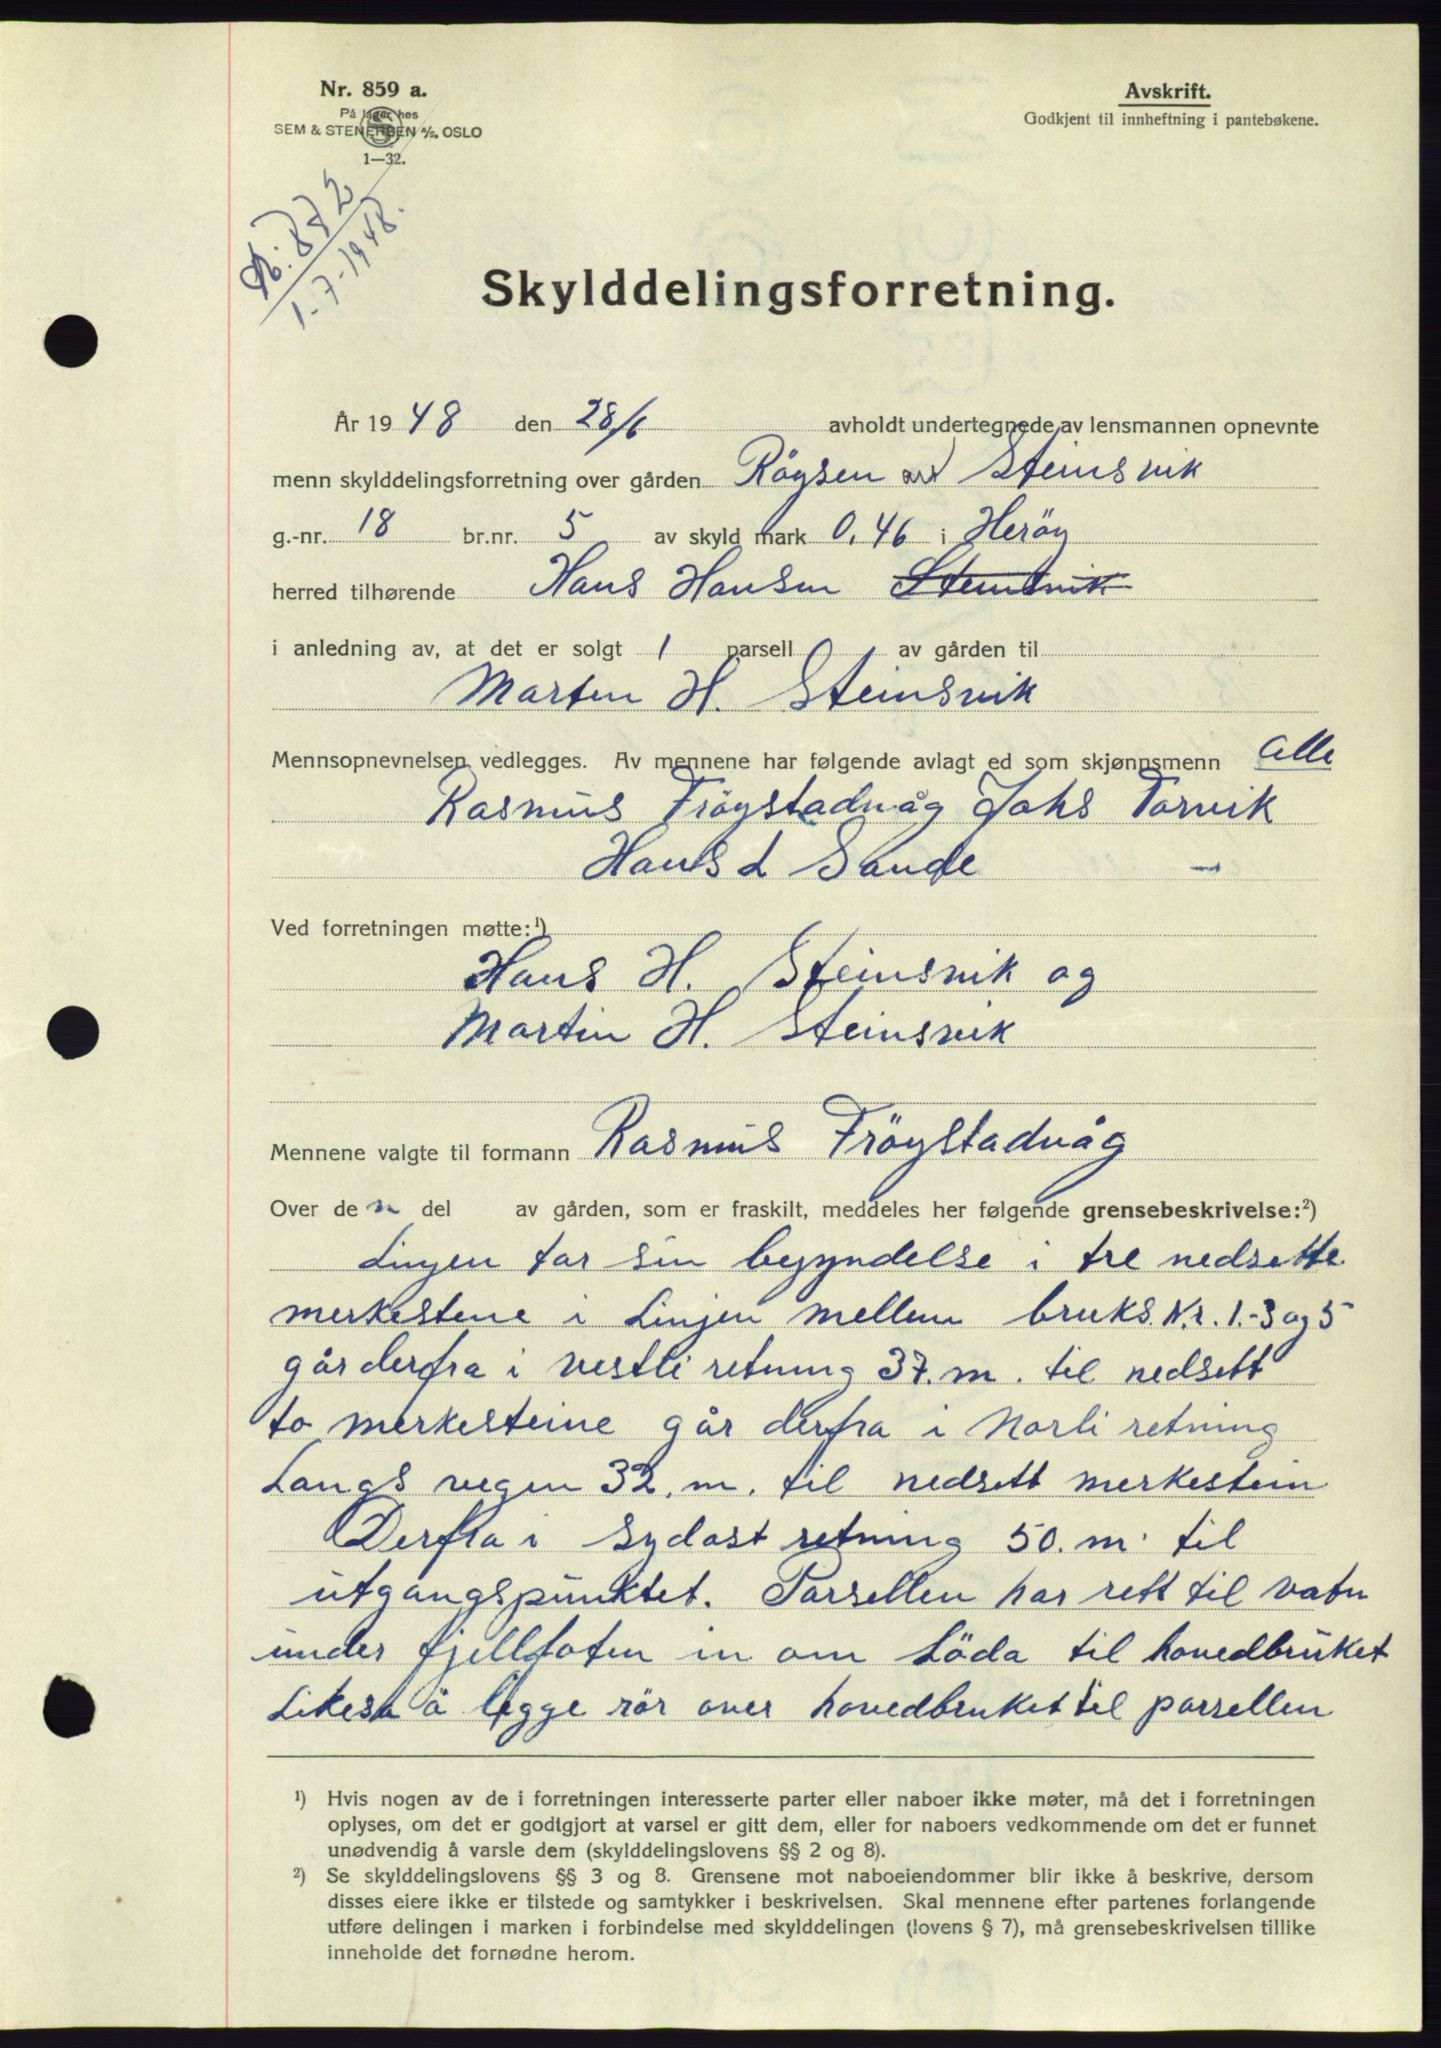 Nr. 859 a.
På lager hos
SEM & STENERSEN A/S. OSLO
1—32.
Avskrift.
Godkjent til innheftning i pantebøkene.
Nr: 872
1.7-1948.
Skylddelingsforretning.
År 1948 den 28/6 avholdt undertegnede av lensmannen opnevnte
menn skylddelingsforretning over gården Röysen av Steinsvik
g.-nr. 18 br.nr. 5 av skyld mark 0,46 i Heröy
herred tilhørende Hans Hansen Steinsvik
i anledning av, at det er solgt 1 parsell av gården til
Martin H. Steinsvik
Mennsopnevnelsen vedlegges. Av mennene har følgende avlagt ed som skjønnsmenn alle
Rasmus Fröystadvåg Johs Torvik
Hans L Sande —
Ved forretningen møtte:¹)
Hans H. Steinsvik og
Martin H. Steinsvik
Mennene valgte til formann Rasmus Fröystadvåg
Over den del av gården, som er fraskilt, meddeles her følgende grensebeskrivelse:²)
Linjen tar sin begyndelse i tre nedsette
merkestene i Linjen mellem bruks.Nr. 1.-3 og 5
går derfra i vestli retning 37.m. til nedsett
to merkesteine går derfra i Norli retning
Langs vegen 32.m. til nedsett merkestein
Derfra i sydost retning 50.m. til
utgangspunktet. Parsellen har rett til vatn
under fjellfoten in om Löda til hovedbruket
Likeså å legge rör over hovedbruket til parsellen
¹) Hvis nogen av de i forretningen interesserte parter eller naboer ikke møter, må det i forretningen
oplyses, om det er godtgjort at varsel er gitt dem, eller for naboers vedkommende om det er funnet
unødvendig å varsle dem (skylddelingslovens §§ 2 og 8).
²) Se skylddelingslovens §§ 3 og 8. Grensene mot naboeiendommer blir ikke å beskrive, dersom
disses eiere ikke er tilstede og samtykker i beskrivelsen. Skal mennene efter partenes forlangende
utføre delingen i marken i forbindelse med skylddelingen (lovens § 7), må grensebeskrivelsen tillike
inneholde det fornødne herom.